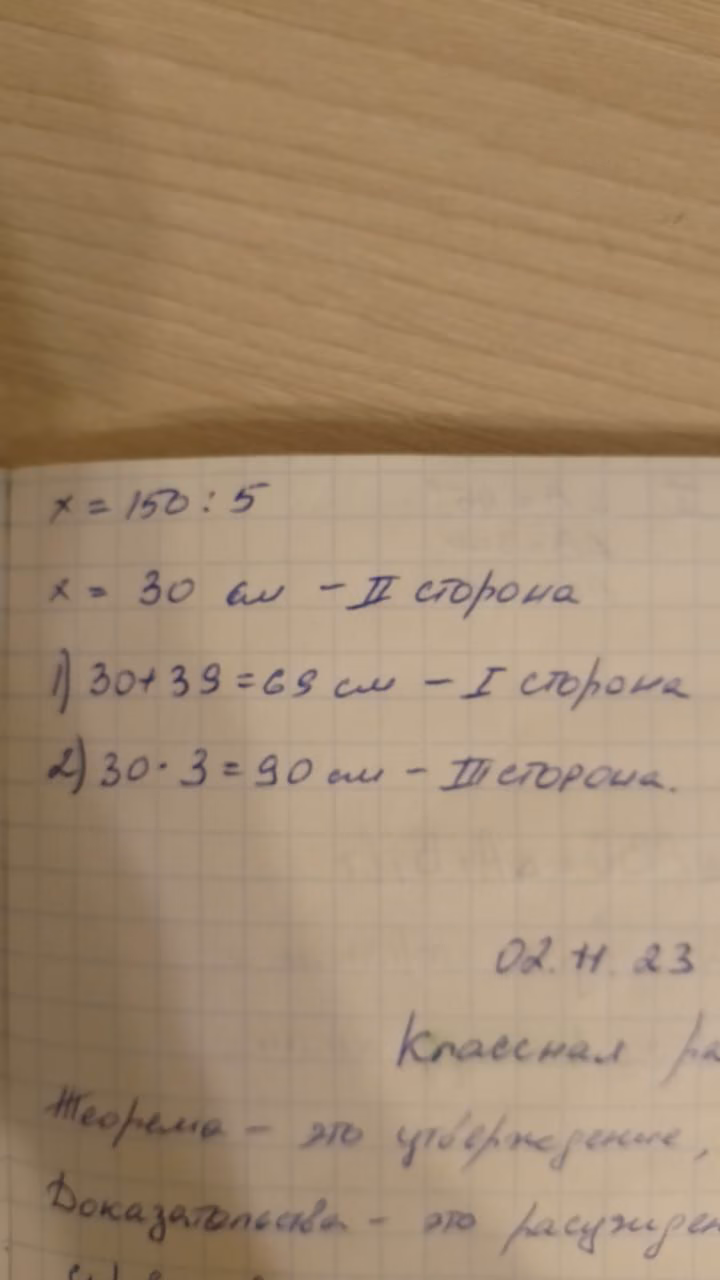 x = 150 : 5
x = 30 см - II сторона
1) 30+39=69 см - I сторона
2) 30 · 3 = 90 см - III сторона.
02.11.23
Классная ра
Теорема - это утверждение,
Доказательства - это расужден